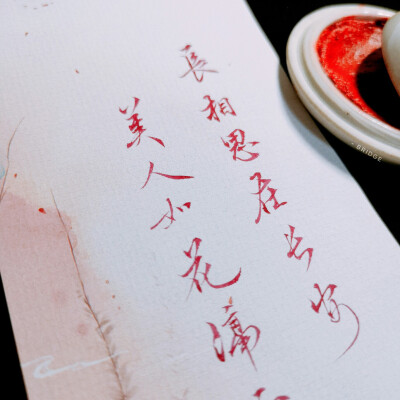 長相思在长安
美人如花
BRIDGE